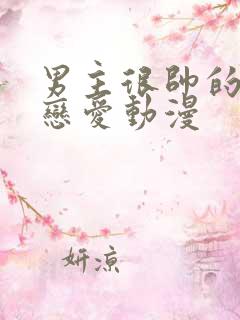 男主很帥的
戀愛動漫
妍涼